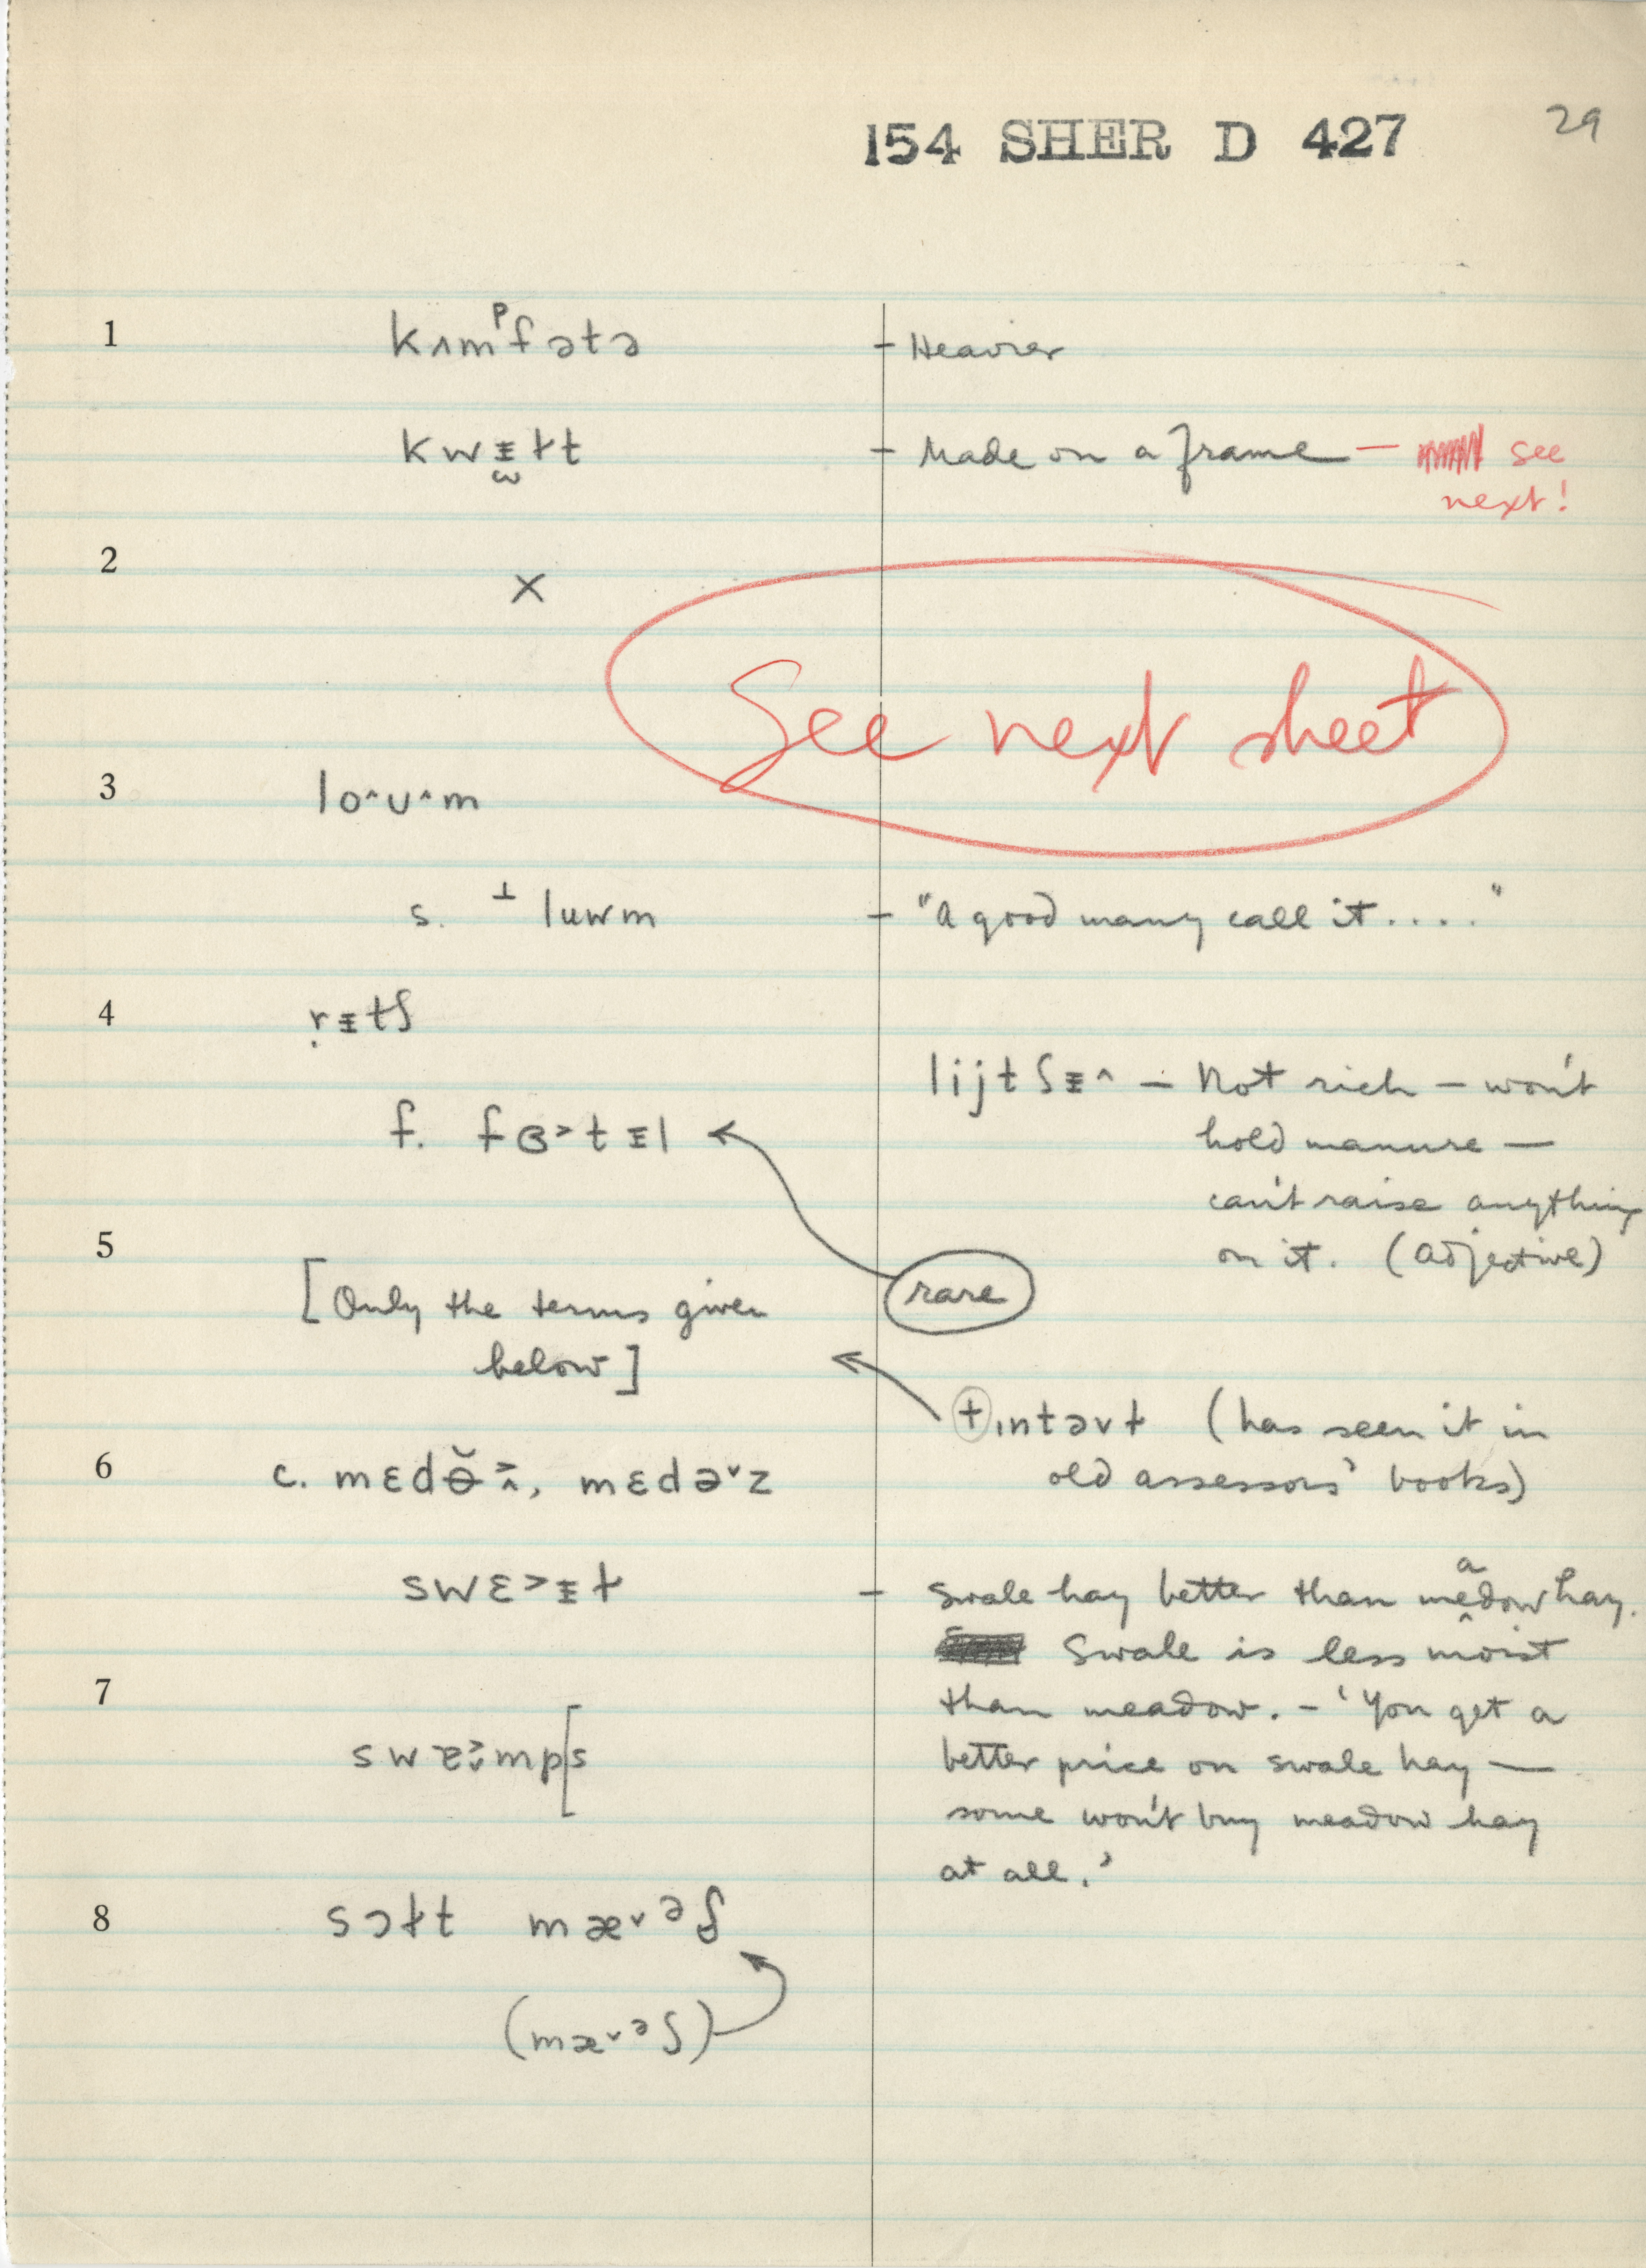 154 SHER D 427 29
1 kʌmᵖfətə - Heavier
kwᵻɫt - Made on a frame - see
next!
2 X
See next sheet
3 lo^ʊ^m
s. ⊥ luwm - "A good many call it . . . . "
4 ṛᵻtʃ
lijtʃᵻ^ - Not rich - won't
f. fɞ>tᵻl hold manure -
can't raise anything
5 on it. (adjective)
[Only the terms given rare
below]
+ ɪntəvɫ (has seen it in
6 c. mɛdɵ̆>^, mɛdə˅z old assessors' books)
a
swɛ>ᵻɫ - Swale hay better than medow hay.
Swale is less moist
7 than meadow. - 'You get a
better price on swale hay —
some won't buy meadow hay
at all.'
8 sɔɫt mæ˅ᵊʃ
(mæ˅ᵊʃ)